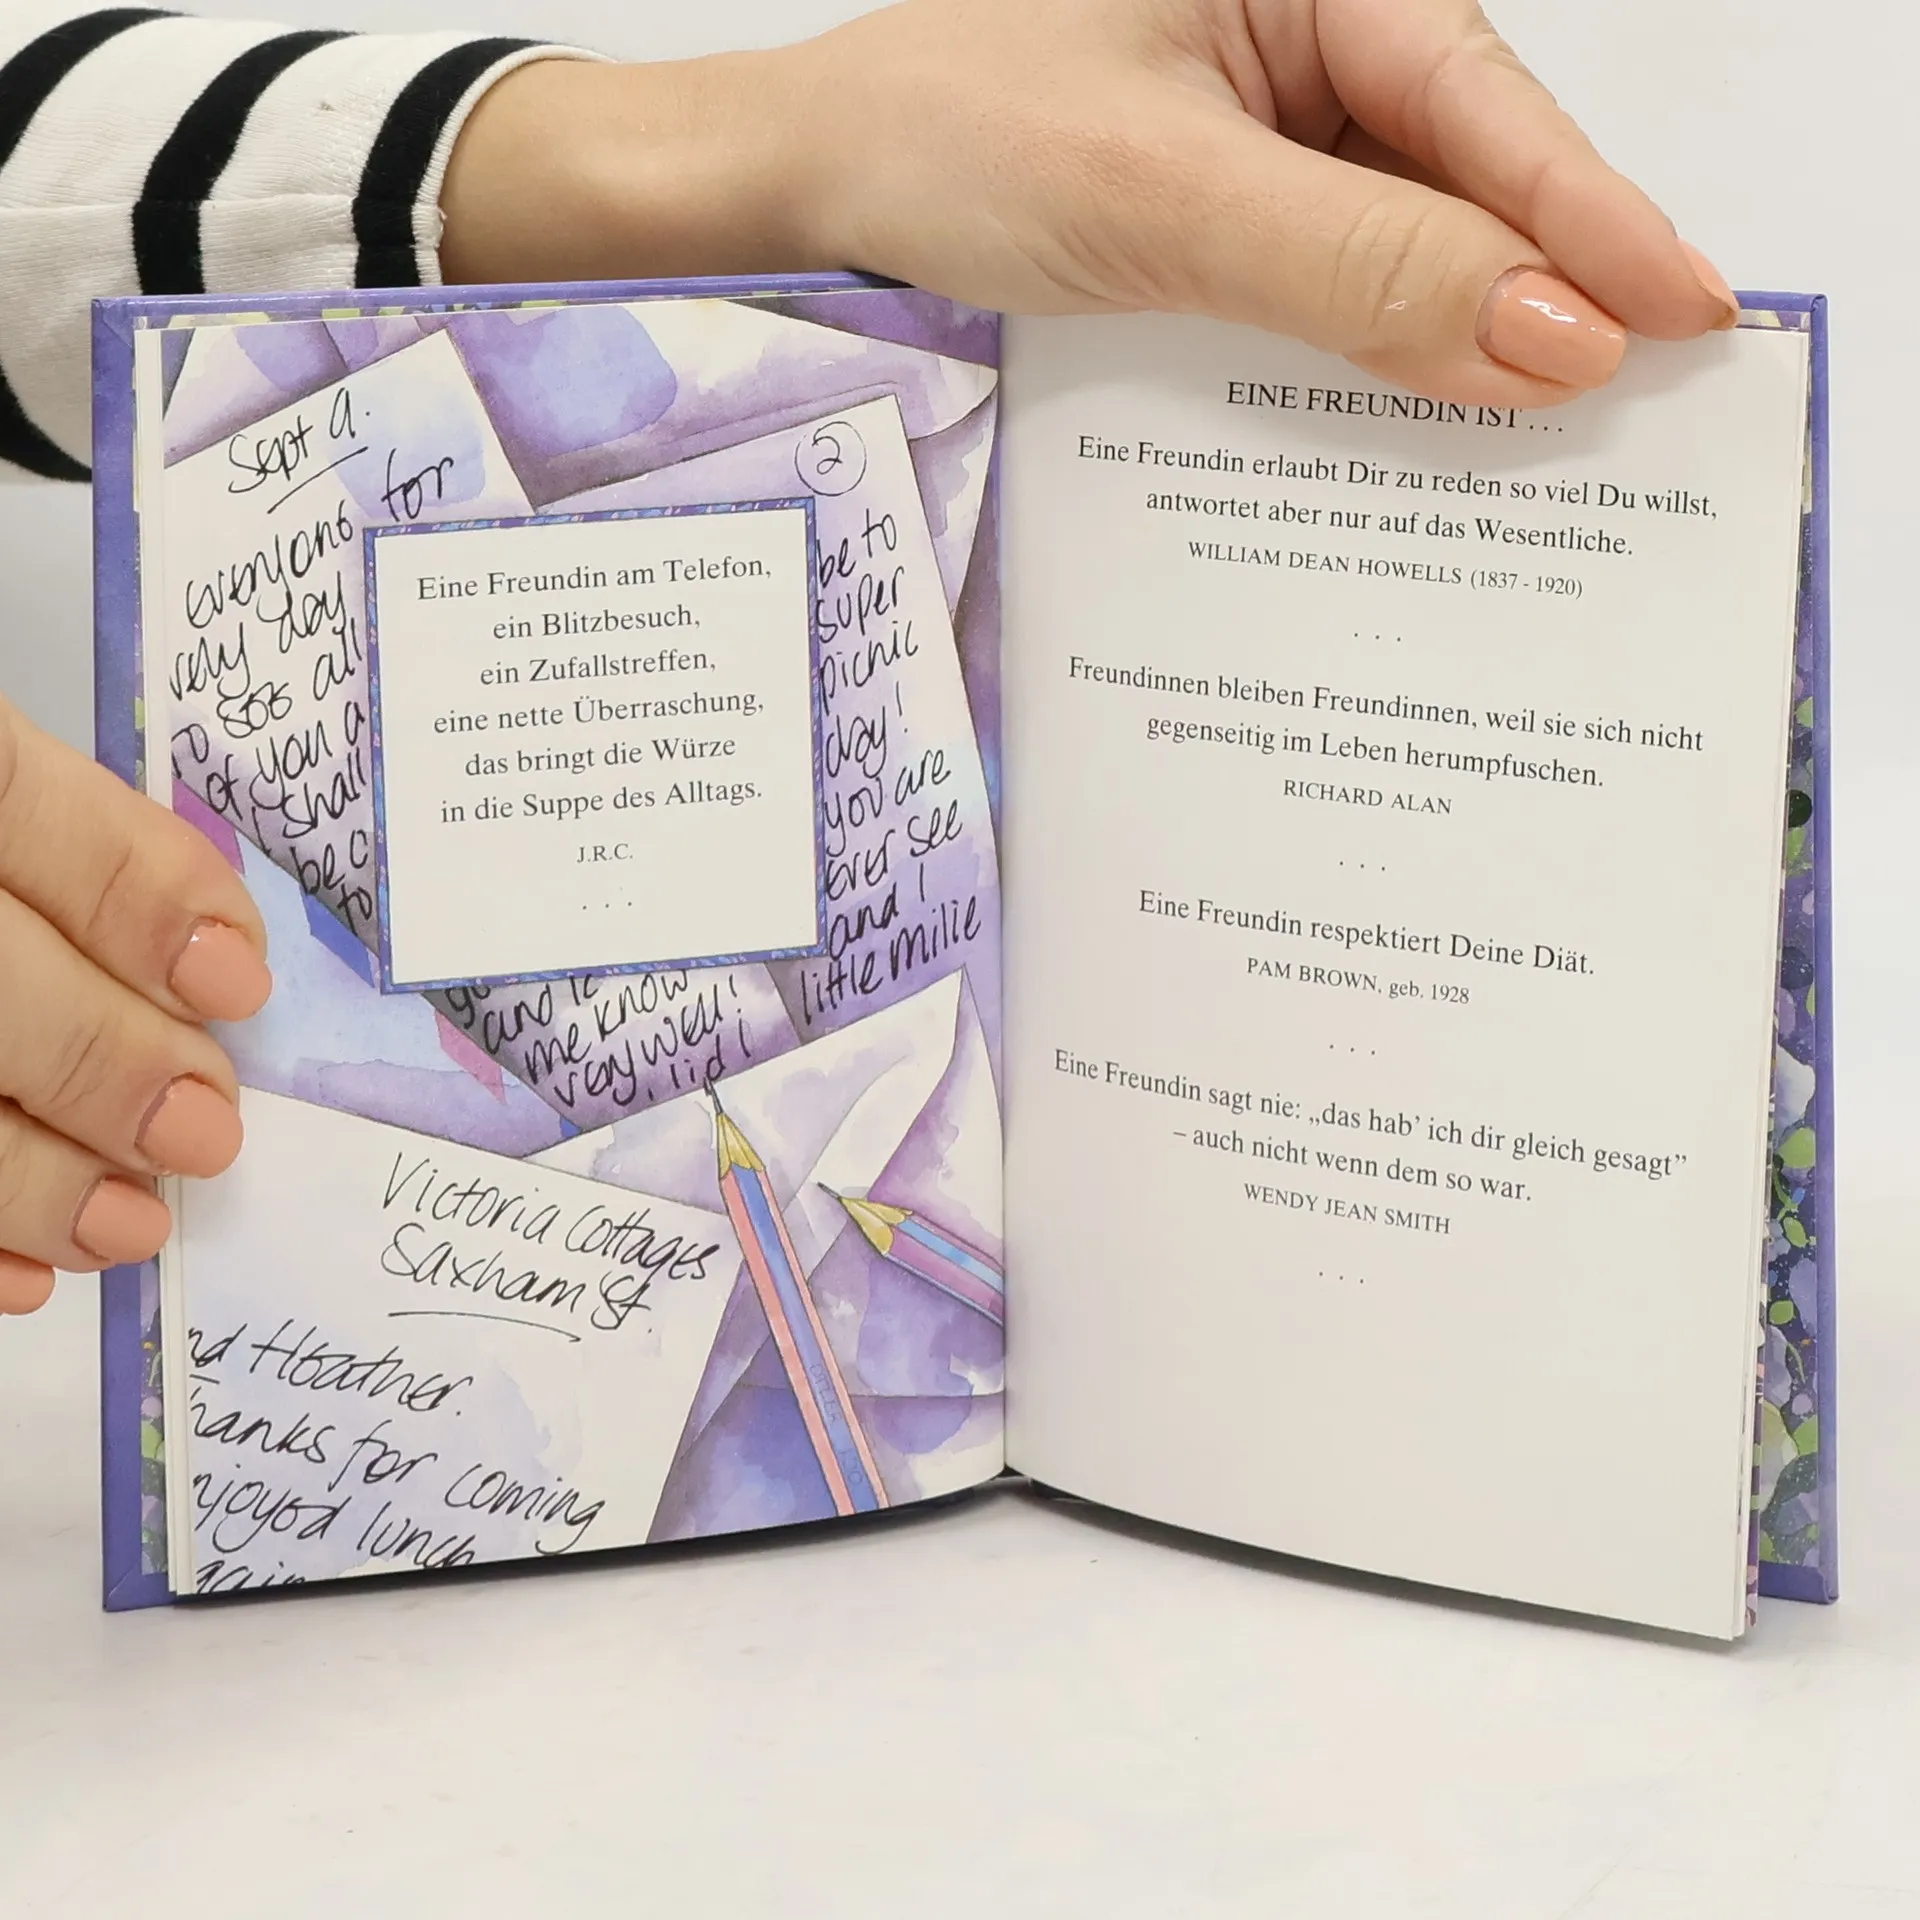 Sept 9.
everyone for
very day
to see all
of you a
I shall
be c
to
2
be to
super
picnic
day!
you are
ever see
and I
little milie
Eine Freundin am Telefon,
ein Blitzbesuch,
ein Zufallstreffen,
eine nette Überraschung,
das bringt die Würze
in die Suppe des Alltags.
J.R.C.
. . .
and
me know
very well!
Victoria Cottages
Saxham St.
nd Heather.
hanks for coming
njoyed lunch
gain
EINE FREUNDIN IST . . .
Eine Freundin erlaubt Dir zu reden so viel Du willst,
antwortet aber nur auf das Wesentliche.
WILLIAM DEAN HOWELLS (1837 - 1920)
. . .
Freundinnen bleiben Freundinnen, weil sie sich nicht
gegenseitig im Leben herumpfuschen.
RICHARD ALAN
. . .
Eine Freundin respektiert Deine Diät.
PAM BROWN, geb. 1928
. . .
Eine Freundin sagt nie: „das hab’ ich dir gleich gesagt”
– auch nicht wenn dem so war.
WENDY JEAN SMITH
. . .